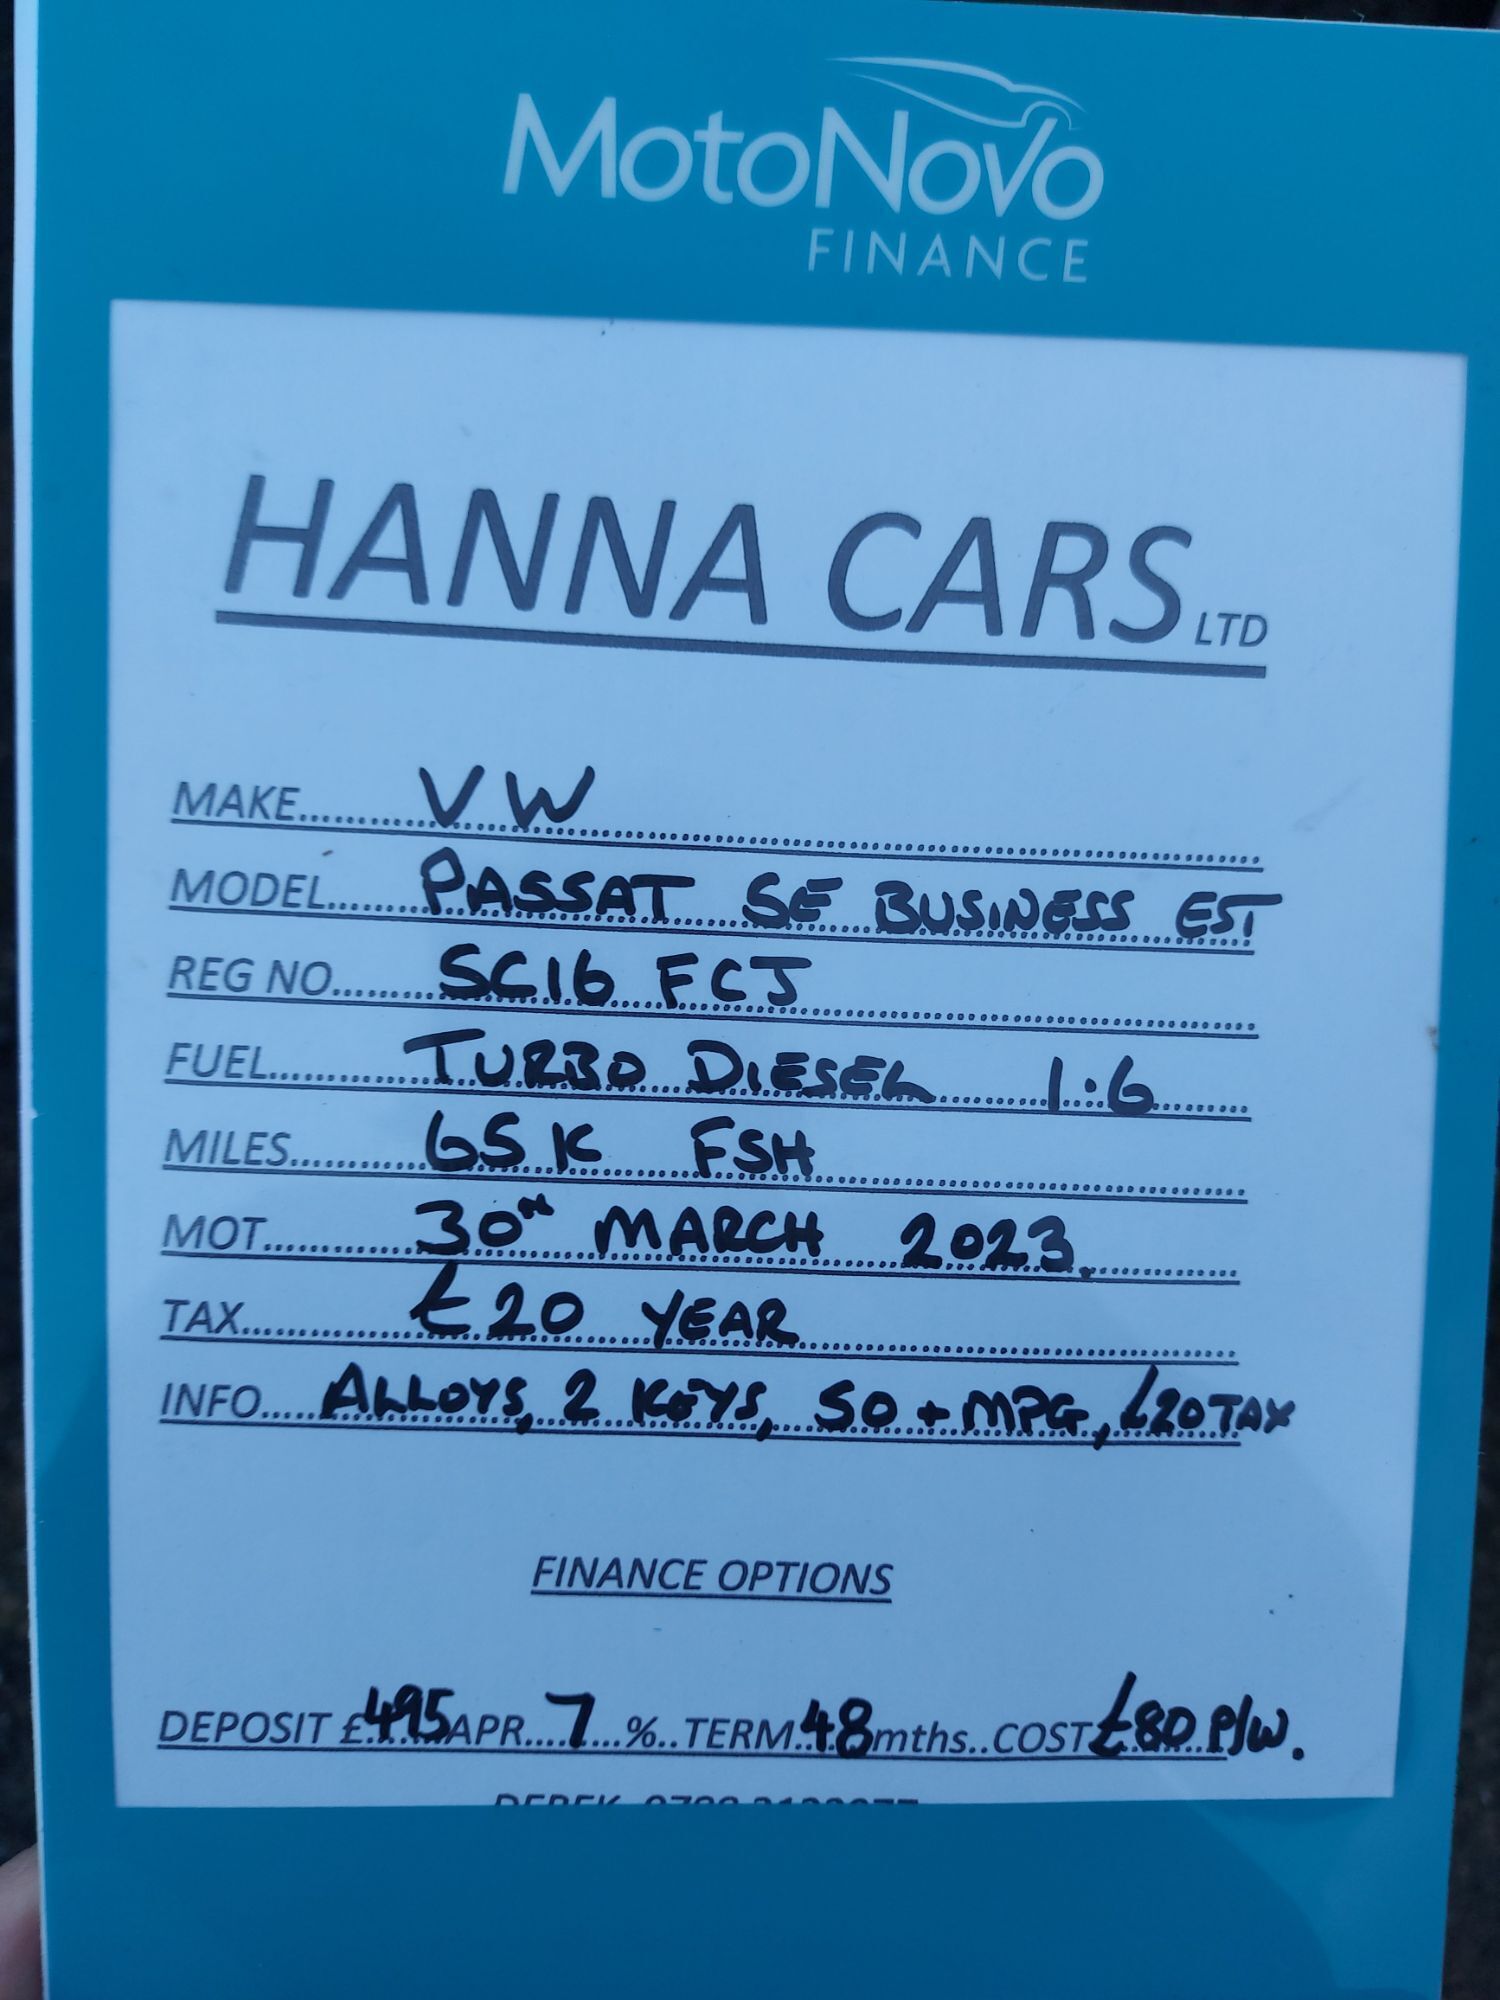 MotoNovo
FINANCE
HANNA CARS LTD
MAKE.......... VW
MODEL....... PASSAT SE BUSINESS EST
REG NO........ SC16 FCJ
FUEL............ TURBO DIESEL 1.6
MILES.......... 65K FSH
MOT............ 30TH MARCH 2023.
TAX............. £20 YEAR
INFO..... ALLOYS, 2 KEYS, 50+MPG, £20 TAX
FINANCE OPTIONS
DEPOSIT £495 APR....7...%..TERM..48mths..COST £80 P/W.
DEREK